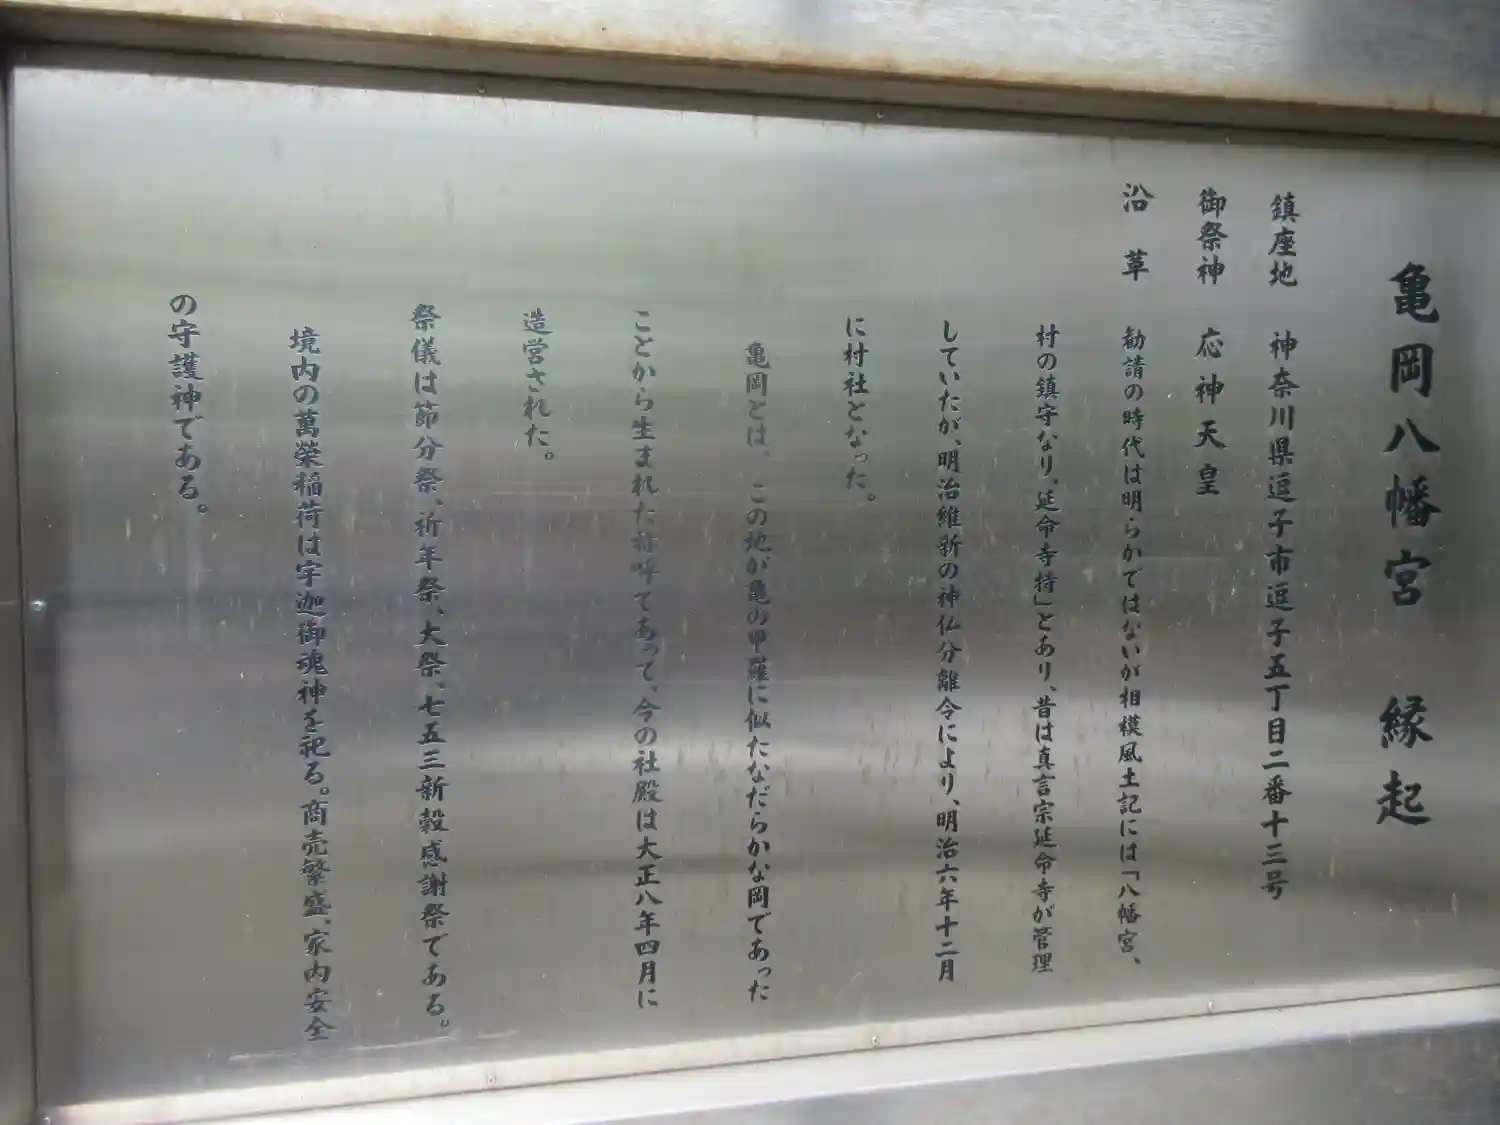 亀岡八幡宮　縁起
鎮座地　神奈川県逗子市逗子五丁目二番十三号
御祭神　応神天皇
沿　革　勧請の時代は明らかではないが相模風土記には「八幡宮、
村の鎮守なり、延命寺持」とあり、昔は真言宗延命寺が管理
していたが、明治維新の神仏分離令により、明治六年十二月
に村社となった。
亀岡とは、この地が亀の甲羅に似たなだらかな岡であった
ことから生まれた称呼であって、今の社殿は大正八年四月に
造営された。
祭儀は節分祭、祈年祭、大祭、七五三新穀感謝祭である。
境内の萬榮稲荷は宇迦御魂神を祀る。商売繁盛、家内安全
の守護神である。